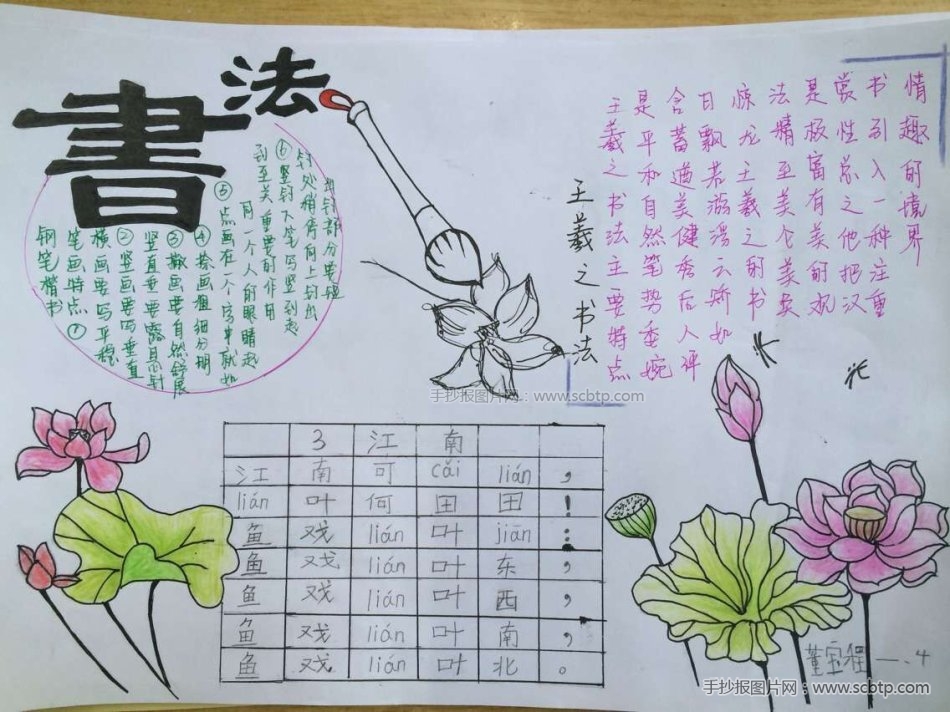 書法
钢笔楷书
笔画特点①
横画要写平稳
②竖画要写垂直
竖直垂要露悬针
③撇画要自然舒展
④捺画粗细分明
⑤点画在一个字中就如
同一个人的眼睛起
到至关重要的作用
⑥竖钩下笔写竖到起
钩处稍停向上钩出
钩部分要短
王羲之书法
王羲之书法主要特点
是平和自然笔势委婉
含蓄遒美健秀后人评
曰飘若游云矫如
惊龙王羲之的书
法精至美个美
是极富有美的观
赏性总之他把汉
书引入一种注重
情趣的境界
手抄报图片网：www.scbtp.com
3 江 南
江 南 可 cǎi lián ，
lián 叶 何 田 田 ！
鱼 戏 lián 叶 jiān ：
鱼 戏 lián 叶 东 ，
鱼 戏 lián 叶 西 ，
鱼 戏 lián 叶 南 ，
鱼 戏 lián 叶 北 。
董宝程 一、4
手抄报图片网：www.scbtp.com